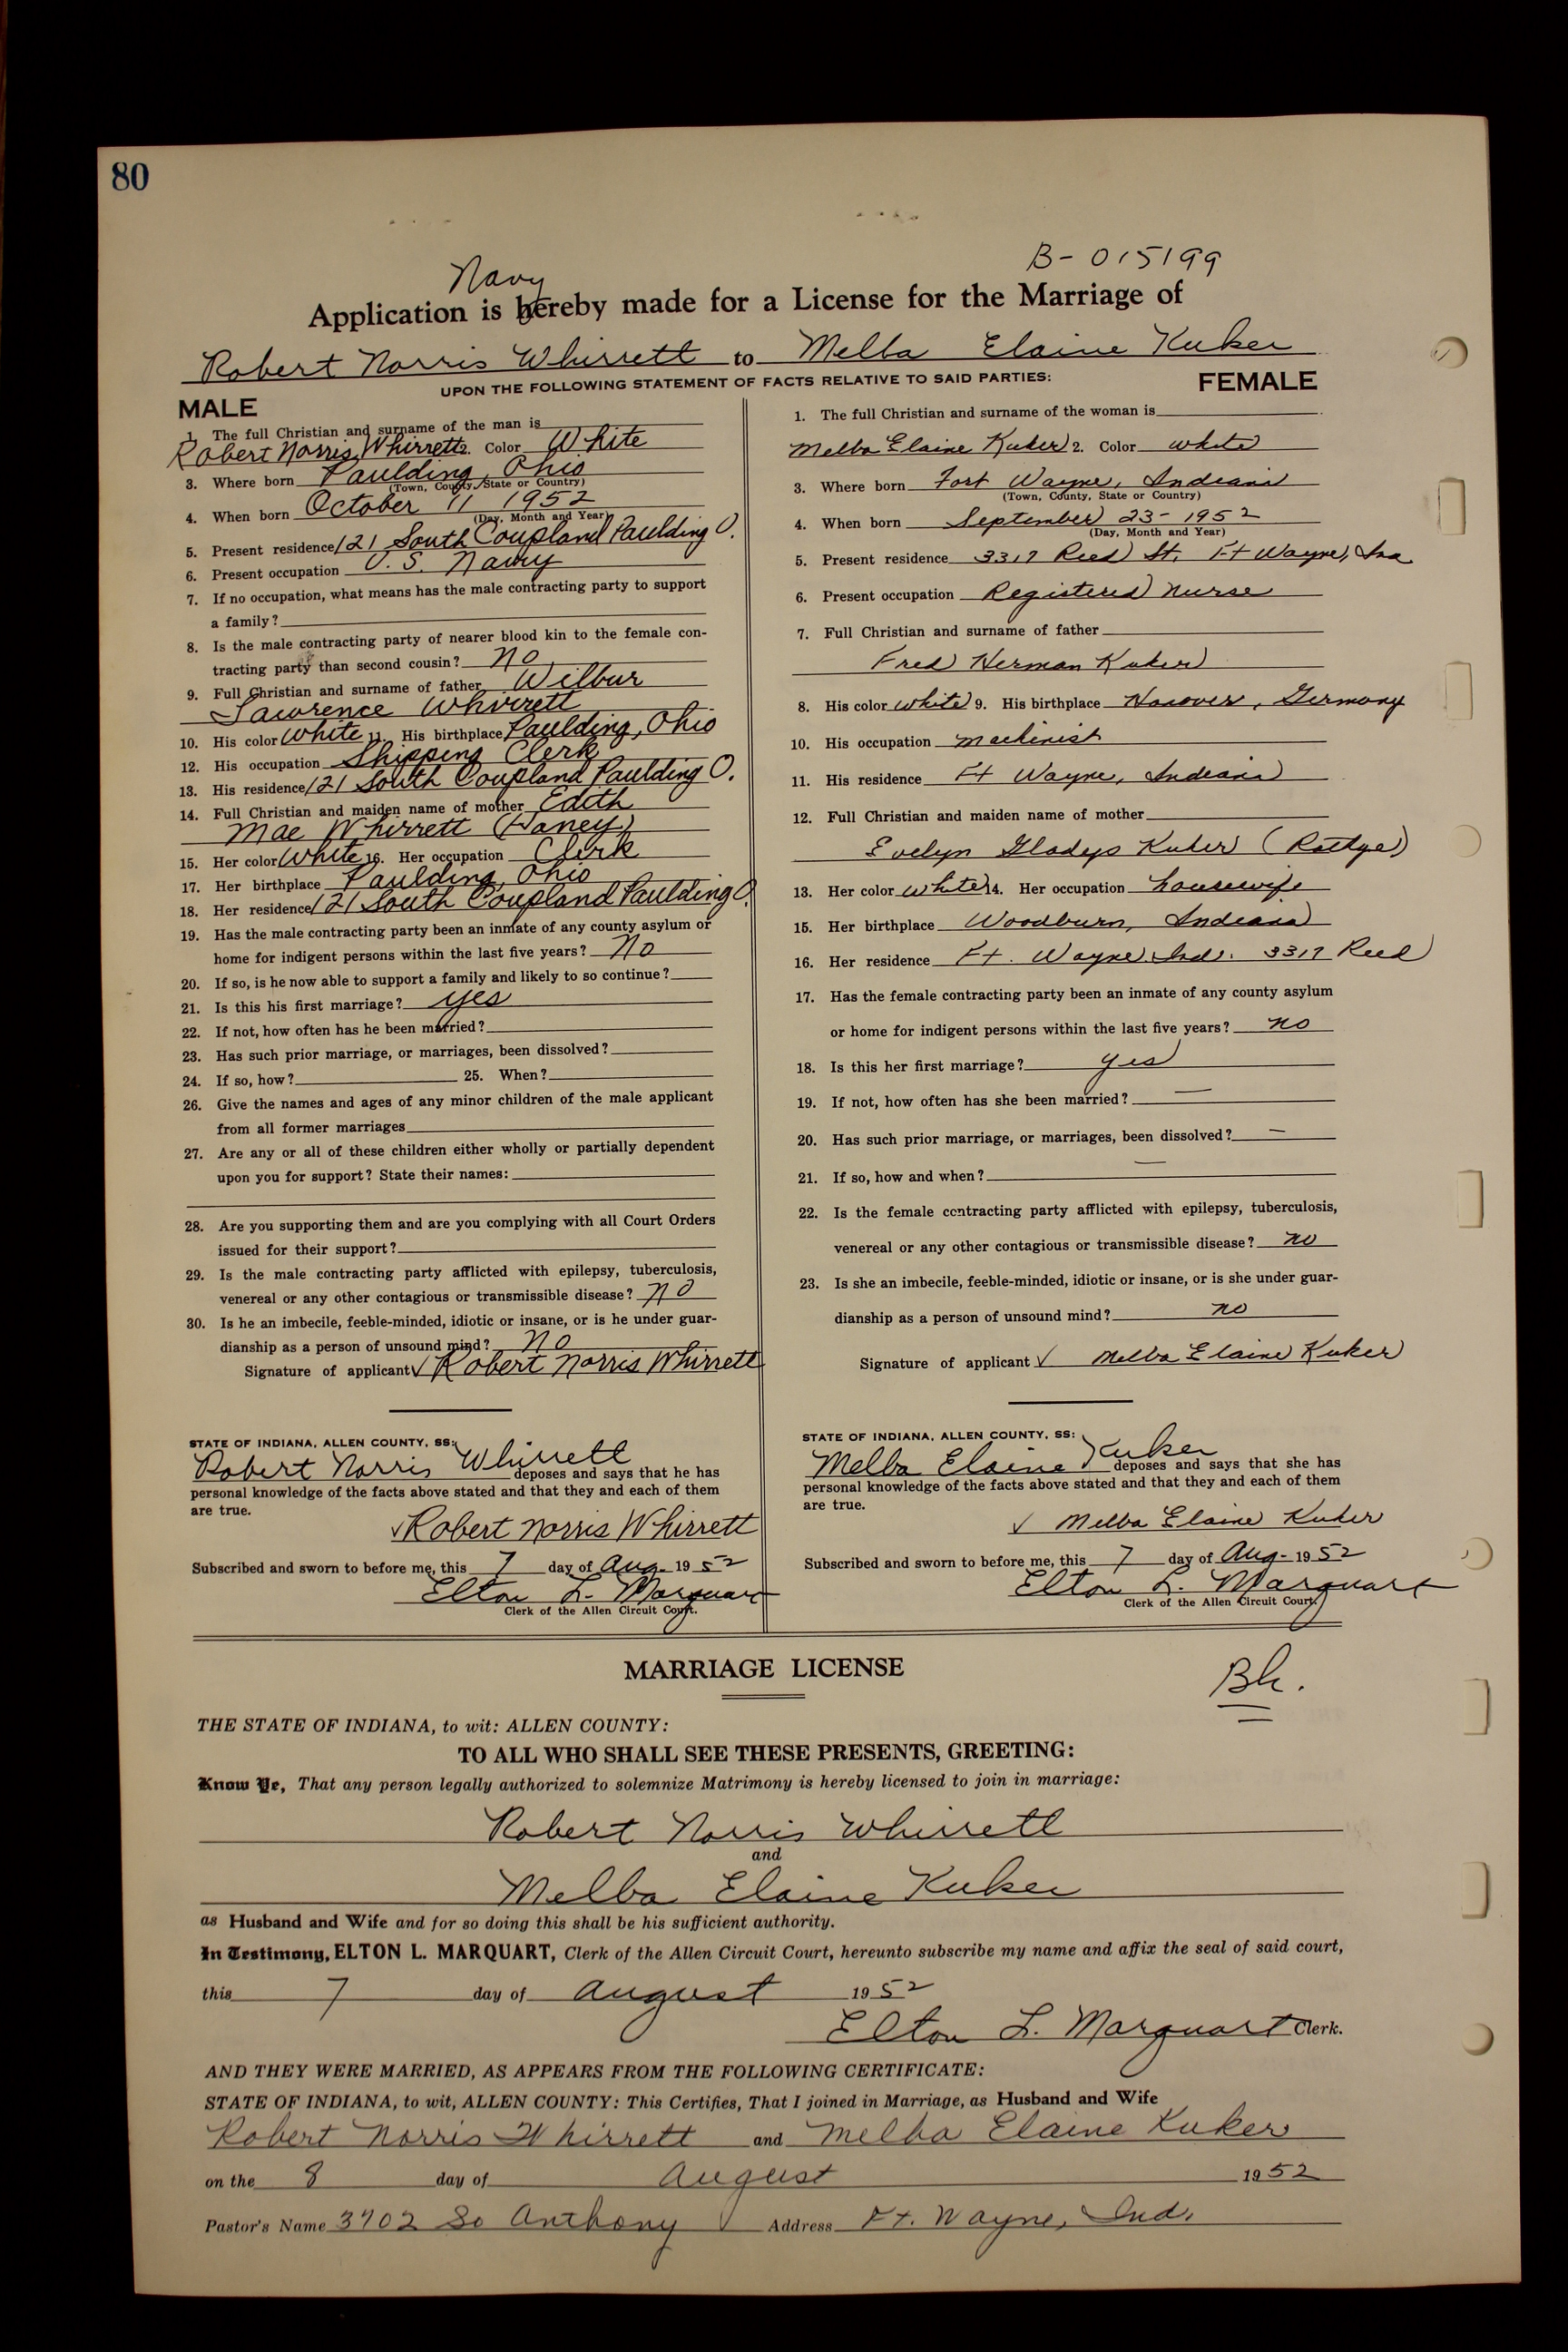 80
B-015199
Navy
Application is hereby made for a License for the Marriage of
Robert Norris Whirrett to Melba Elaine Kuker
UPON THE FOLLOWING STATEMENT OF FACTS RELATIVE TO SAID PARTIES:
MALE
1. The full Christian and surname of the man is
Robert Norris Whirrett 2. Color White
3. Where born Paulding, Ohio
(Town, County, State or Country)
4. When born October 11 1952
(Day, Month and Year)
5. Present residence 121 South Coupland Paulding O.
6. Present occupation U. S. Navy
7. If no occupation, what means has the male contracting party to support
a family?
8. Is the male contracting party of nearer blood kin to the female con-
tracting party than second cousin? no
9. Full Christian and surname of father Wilbur
Lawrence Whirrett
10. His color White 11. His birthplace Paulding, Ohio
12. His occupation Shipping Clerk
13. His residence 121 South Coupland Paulding O.
14. Full Christian and maiden name of mother Edith
Mae Whirrett (Haney)
15. Her color White 16. Her occupation Clerk
17. Her birthplace Paulding, Ohio
18. Her residence 121 South Coupland Paulding O.
19. Has the male contracting party been an inmate of any county asylum or
home for indigent persons within the last five years? no
20. If so, is he now able to support a family and likely to so continue?
21. Is this his first marriage? yes
22. If not, how often has he been married?
23. Has such prior marriage, or marriages, been dissolved?
24. If so, how? 25. When?
26. Give the names and ages of any minor children of the male applicant
from all former marriages
27. Are any or all of these children either wholly or partially dependent
upon you for support? State their names:
28. Are you supporting them and are you complying with all Court Orders
issued for their support?
29. Is the male contracting party afflicted with epilepsy, tuberculosis,
venereal or any other contagious or transmissible disease? no
30. Is he an imbecile, feeble-minded, idiotic or insane, or is he under guar-
dianship as a person of unsound mind? no
Signature of applicant ✓ Robert Norris Whirrett
STATE OF INDIANA, ALLEN COUNTY, SS:
Robert Norris Whirrett deposes and says that he has
personal knowledge of the facts above stated and that they and each of them
are true.
✓ Robert Norris Whirrett
Subscribed and sworn to before me, this 7 day of Aug. 19 52
Elton L. Marquart
Clerk of the Allen Circuit Court.
FEMALE
1. The full Christian and surname of the woman is
Melba Elaine Kuker 2. Color white
3. Where born Fort Wayne, Indiana
(Town, County, State or Country)
4. When born September 23 - 1952
(Day, Month and Year)
5. Present residence 3317 Reed St. Ft Wayne, Ina
6. Present occupation Registered Nurse
7. Full Christian and surname of father
Fred Herman Kuker
8. His color white 9. His birthplace Hanover, Germany
10. His occupation machinist
11. His residence Ft Wayne, Indiana
12. Full Christian and maiden name of mother
Evelyn Gladys Kuker
13. Her color white 14. Her occupation housewife
15. Her birthplace Woodburn, Indiana
16. Her residence Ft. Wayne Ind. 3317 Reed
17. Has the female contracting party been an inmate of any county asylum
or home for indigent persons within the last five years? no
18. Is this her first marriage? yes
19. If not, how often has she been married? —
20. Has such prior marriage, or marriages, been dissolved? —
21. If so, how and when? —
22. Is the female contracting party afflicted with epilepsy, tuberculosis,
venereal or any other contagious or transmissible disease? no
23. Is she an imbecile, feeble-minded, idiotic or insane, or is she under guar-
dianship as a person of unsound mind? no
Signature of applicant ✓ Melba Elaine Kuker
STATE OF INDIANA, ALLEN COUNTY, SS:
Melba Elaine Kuker deposes and says that she has
personal knowledge of the facts above stated and that they and each of them
are true.
✓ Melba Elaine Kuker
Subscribed and sworn to before me, this 7 day of Aug. 19 52
Elton L. Marquart
Clerk of the Allen Circuit Court.
MARRIAGE LICENSE
Bh.
THE STATE OF INDIANA, to wit: ALLEN COUNTY:
TO ALL WHO SHALL SEE THESE PRESENTS, GREETING:
Know Ye, That any person legally authorized to solemnize Matrimony is hereby licensed to join in marriage:
Robert Norris Whirrett
and
Melba Elaine Kuker
as Husband and Wife and for so doing this shall be his sufficient authority.
In Testimony, ELTON L. MARQUART, Clerk of the Allen Circuit Court, hereunto subscribe my name and affix the seal of said court,
this 7 day of August 19 52
Elton L. Marquart Clerk.
AND THEY WERE MARRIED, AS APPEARS FROM THE FOLLOWING CERTIFICATE:
STATE OF INDIANA, to wit, ALLEN COUNTY: This Certifies, That I joined in Marriage, as Husband and Wife
Robert Norris Whirrett and Melba Elaine Kuker
on the 8 day of August 19 52
Pastor's Name 3702 So Anthony Address Ft. Wayne, Ind.